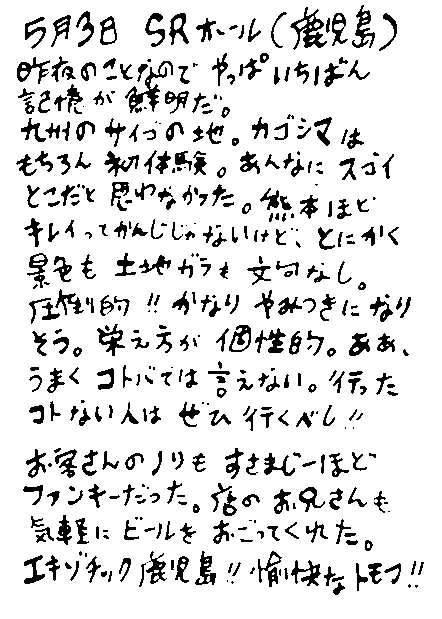 5月3日 SRホール(鹿児島)
昨夜のことなので やっぱ いちばん
記憶が 鮮明だ。
九州の サイゴの 地。カゴシマは
もちろん 初体験。あんなに スゴイ
とこだと 思わなかった。熊本ほど
キレイってかんじじゃないけど、とにかく
景色も 土地ガラも 文句なし。
圧倒的!! かなり やみつきに なり
そう。栄え方が 個性的。ああ、
うまく コトバでは 言えない。行った
コトない人は ぜひ 行くべし!!
お客さんの ノリも すさまじーほど
ファンキーだった。店の お兄さんも
気軽に ビールを おごってくれた。
エキゾチック 鹿児島!! 愉快な トモコ!!